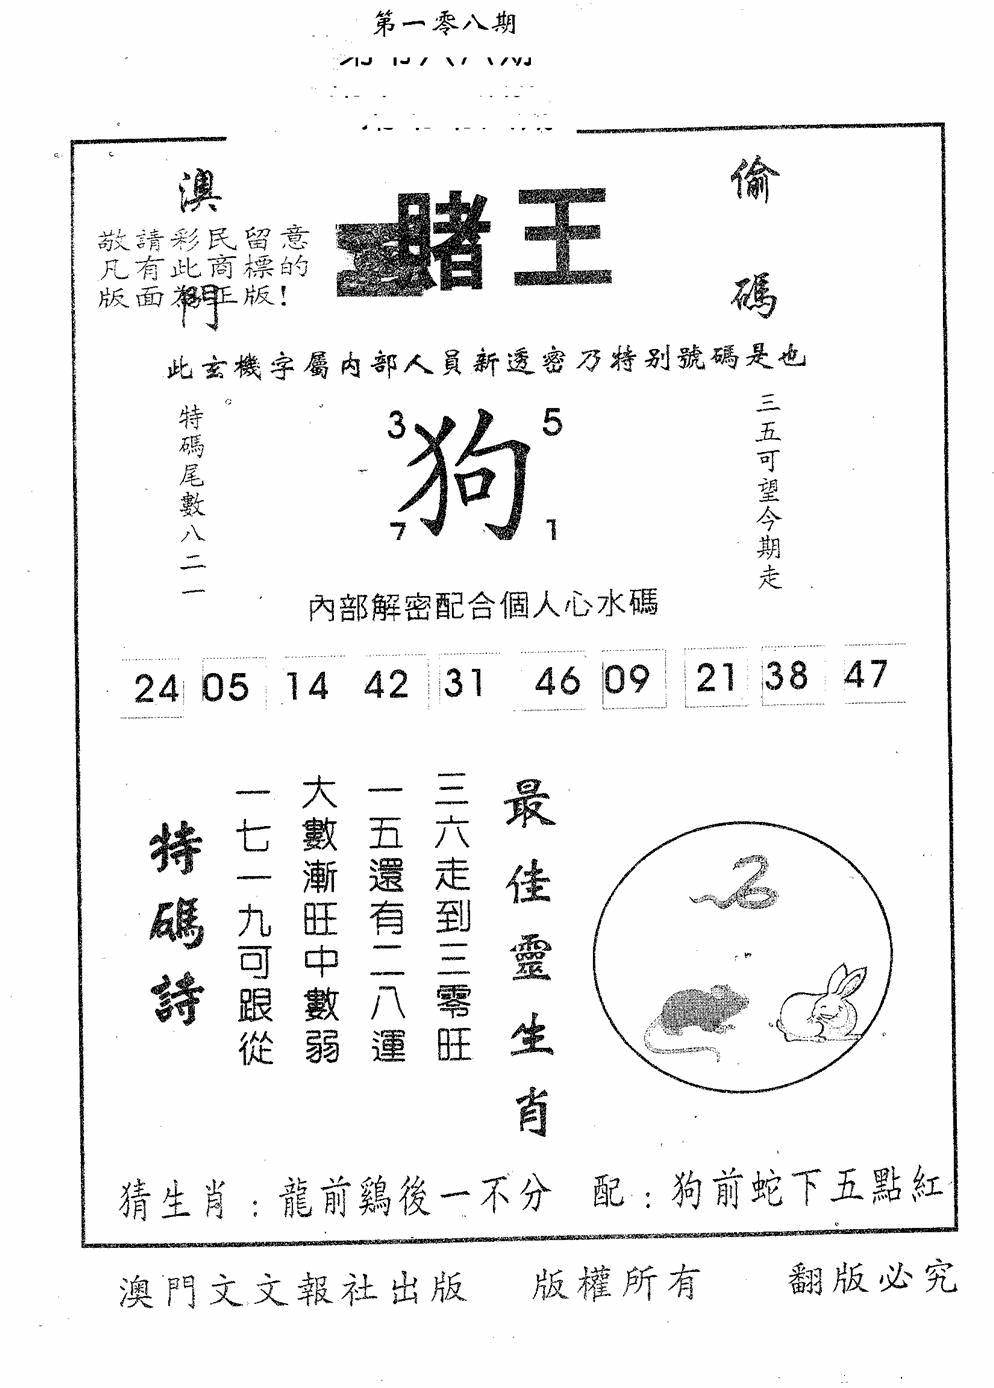 第一零八期
澳門
賭王
偷碼
敬請彩民留意
凡有此商標的
版面為正版!
此玄機字屬内部人員新透密乃特别號碼是也
特碼尾數八二一
3 5
狗
7 1
三五可望今期走
內部解密配合個人心水碼
24 05 14 42 31 46 09 21 38 47
最佳靈生肖
三六走到三零旺
一五還有二八運
大數漸旺中數弱
一七一九可跟從
特碼詩
猜生肖：龍前鷄後一不分 配：狗前蛇下五點紅
澳門文文報社出版 版權所有 翻版必究